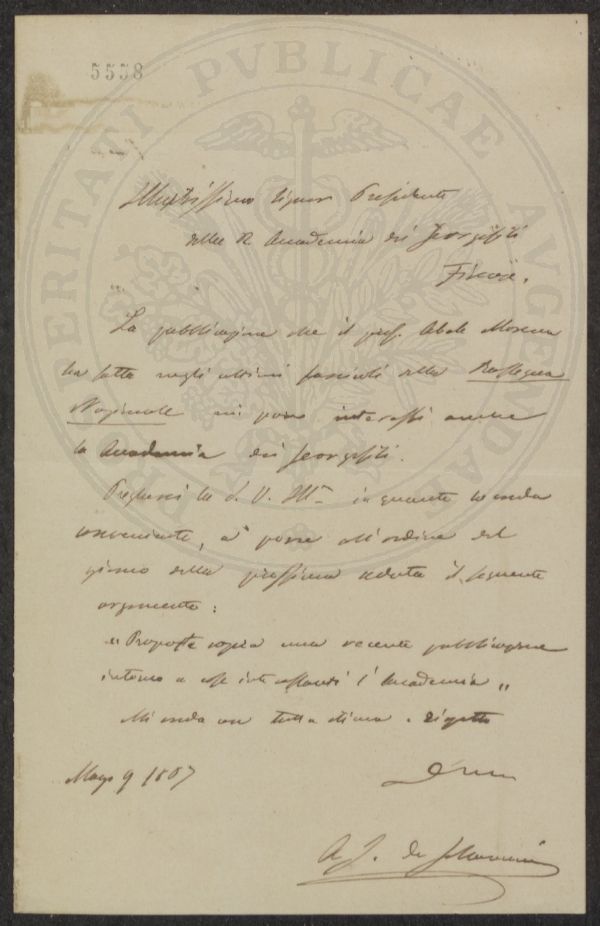 5558
PROSPERITATI PVBLICAE AVGENDAE
Illustrissimo Signor Presidente
della R. Accademia dei Georgofili
Firenze.
La pubblicazione che il prof. Abate Morena
ha fatta negli ultimi fascicoli della Rassegna
Nazionale mi pare interessi anche
la Accademia dei Georgofili.
Pregherei la S. V. Ill.ma in quanto lo creda
conveniente, a porre all'ordine del
giorno della prossima seduta il seguente
argomento:
"Proposte sopra una recente pubblicazione
intorno a cose interessanti l'Accademia"
Mi creda con tutta stima e rispetto
9 1887
A. J. de Johannis